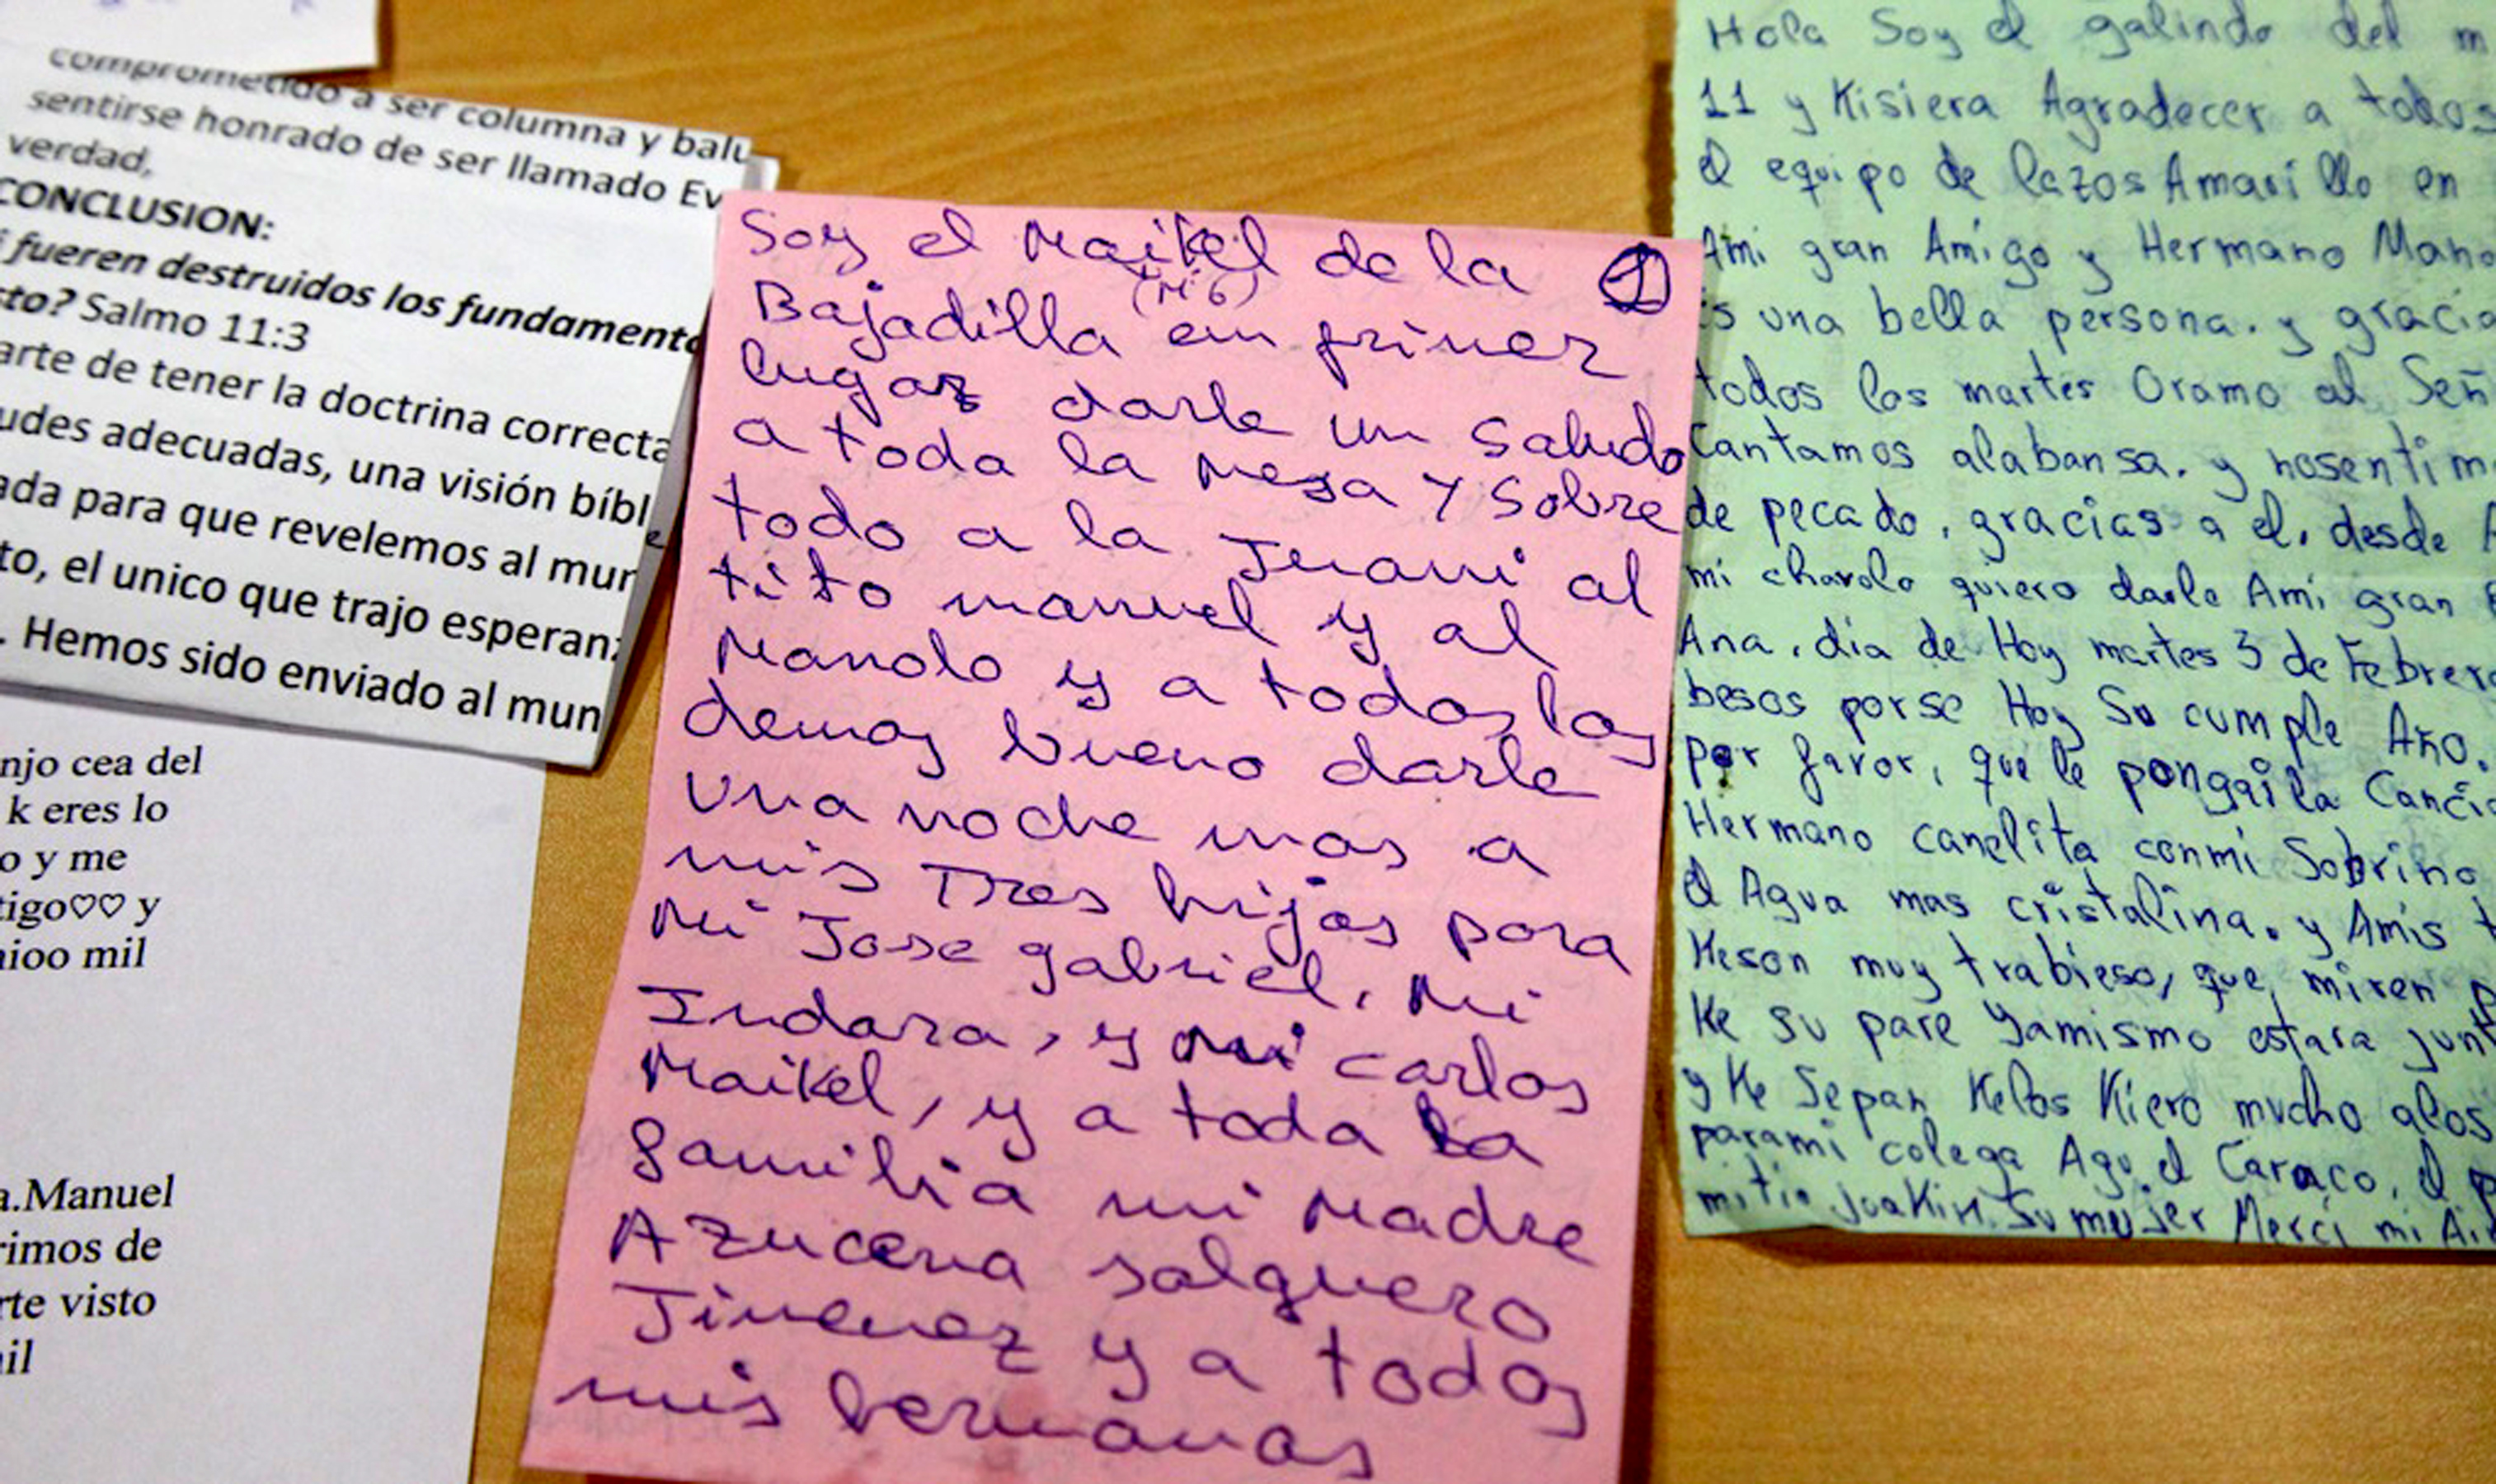 comprometido a ser columna y balu
sentirse honrado de ser llamado Ev
verdad,
CONCLUSION:
i fueren destruidos los fundamento
sto? Salmo 11:3
arte de tener la doctrina correcta
udes adecuadas, una visión bíbl
ada para que revelemos al mun
to, el unico que trajo esperanz
. Hemos sido enviado al mun
njo cea del
k eres lo
o y me
tigo♡♡ y
nioo mil
a.Manuel
rimos de
rte visto
nil
Soy el Maikel de la ①
(M·6)
Bajadilla en primer
lugar darle un saludo
a toda la mesa y sobre
todo a la Juani al
tito manuel y al
Manolo y a todos los
demas bueno darle
una noche mas a
mis Tres hijos para
Mi Jose gabriel, Mi
Indara, y mi carlos
Maikel, y a toda la
familia mi Madre
Azucena salguero
Jimenez y a todos
mis hermanos
Hola Soy el galindo del m
11 y Kisiera Agradecer a todos
el equipo de lazos Amarillo en
Ami gran Amigo y Hermano Mano
es una bella persona. y gracia
todos los martes Oramo al Señ
Cantamos alabansa. y nosentim
de pecado, gracias a el. desde A
mi chavolo quiero darle Ami gran
Ana. dia de Hoy martes 3 de Febrero
besos porse Hoy Su cumple Año.
por favor, que le pongaila Canció
Hermano canelita conmi Sobrino
el Agua mas cristalina. y Amis t
Keson muy trabieso, que miren p
Ke su pare yamismo estara junt
y Ke Sepan Kelos Kiero mucho alos
parami colega Agu el Caraco, el p
mi tio JuaKin. Su mujer Merci mi Ai